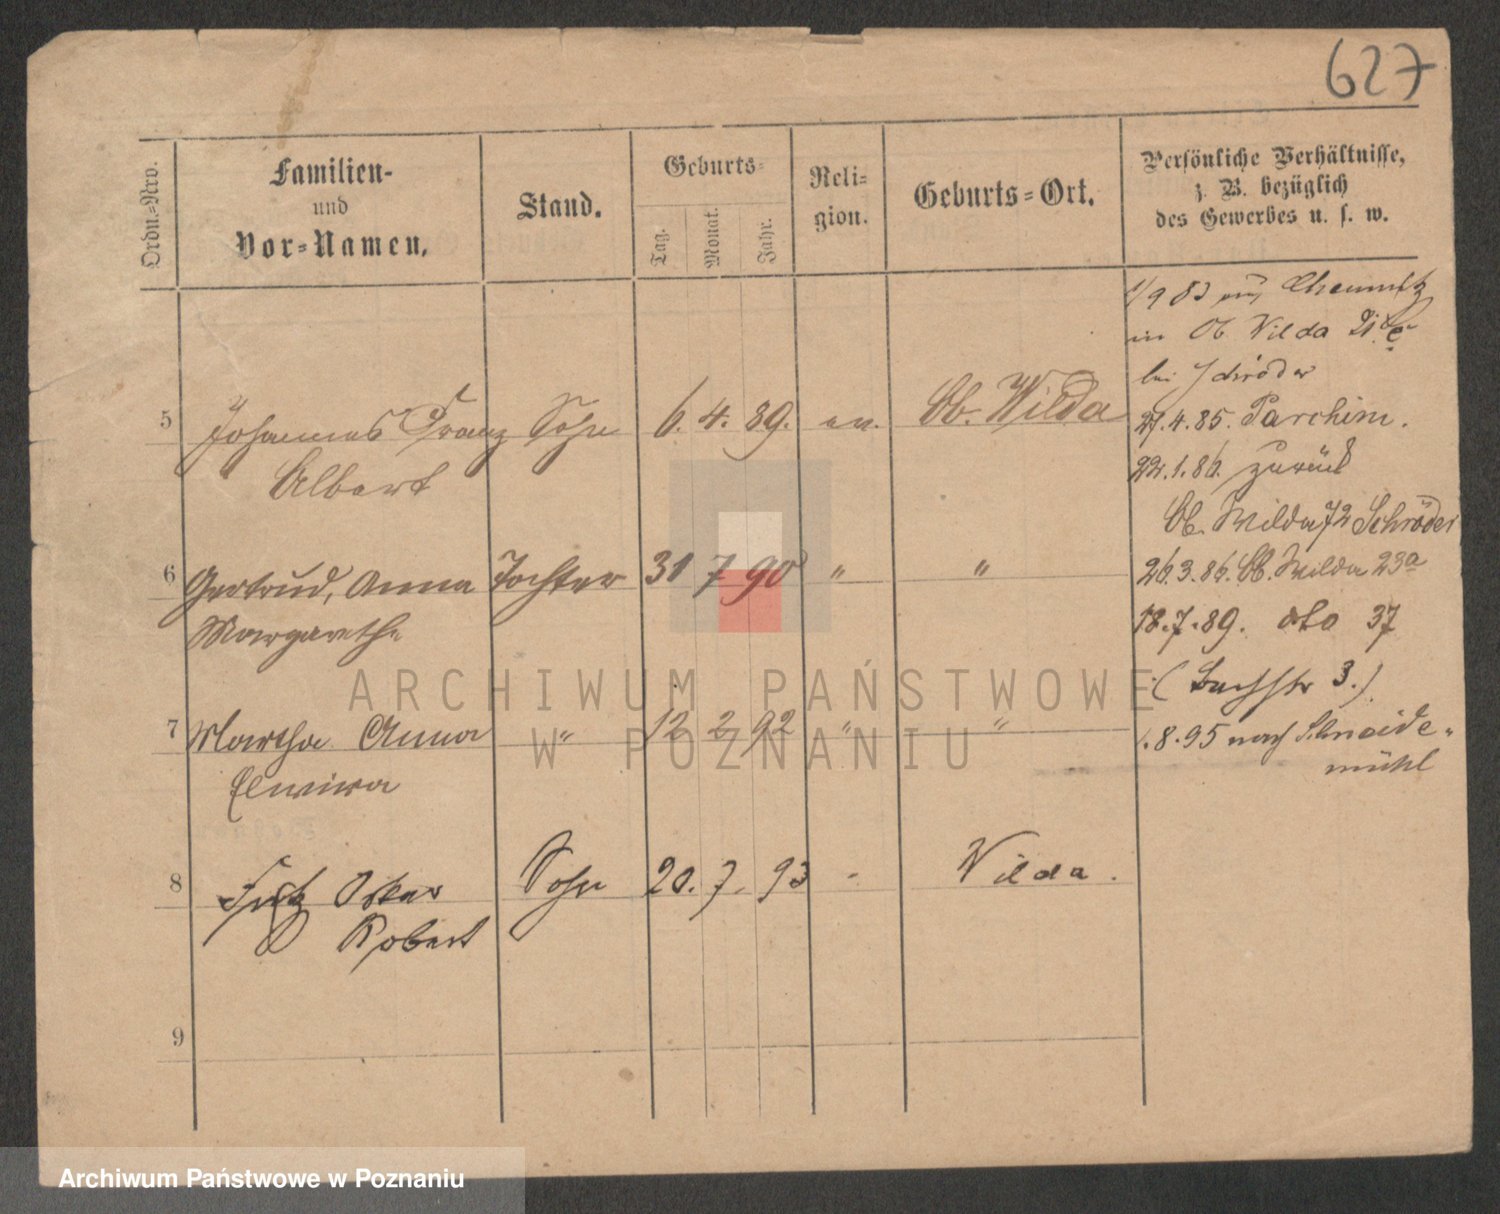 627
Ordn.-Nro.
Familien-
und
Vor-Namen.
Stand.
Geburts-
Tag.
Monat.
Jahr.
Reli-
gion.
Geburts-Ort.
Persönliche Verhältnisse,
z. B. bezüglich
des Gewerbes u. s. w.
1/9 83 Chemnitz
in Ob. Wilda
bei Schröder
5 Johannes Franz Sohn 6. 4. 89. ev. Ob. Wilda
Albert
27.4.85. Parchim.
22.1.86. zurück
Ob. Wilda 72 Schröder
6 Gertrud, Anna Tochter 31 7 90 " "
Margarethe
26.3.86. Ob. Wilda 23a
18.7.89. dto 37
(Bachstr 3.)
7 Martha Anna " 12 2 92 " "
Elwira
.8.95 nach Schneide-
mühl
8 Fritz Oskar Sohn 20. 7. 93 - Wilda.
Robert
9
ARCHIWUM PAŃSTWOWE
W POZNANIU
Archiwum Państwowe w Poznaniu